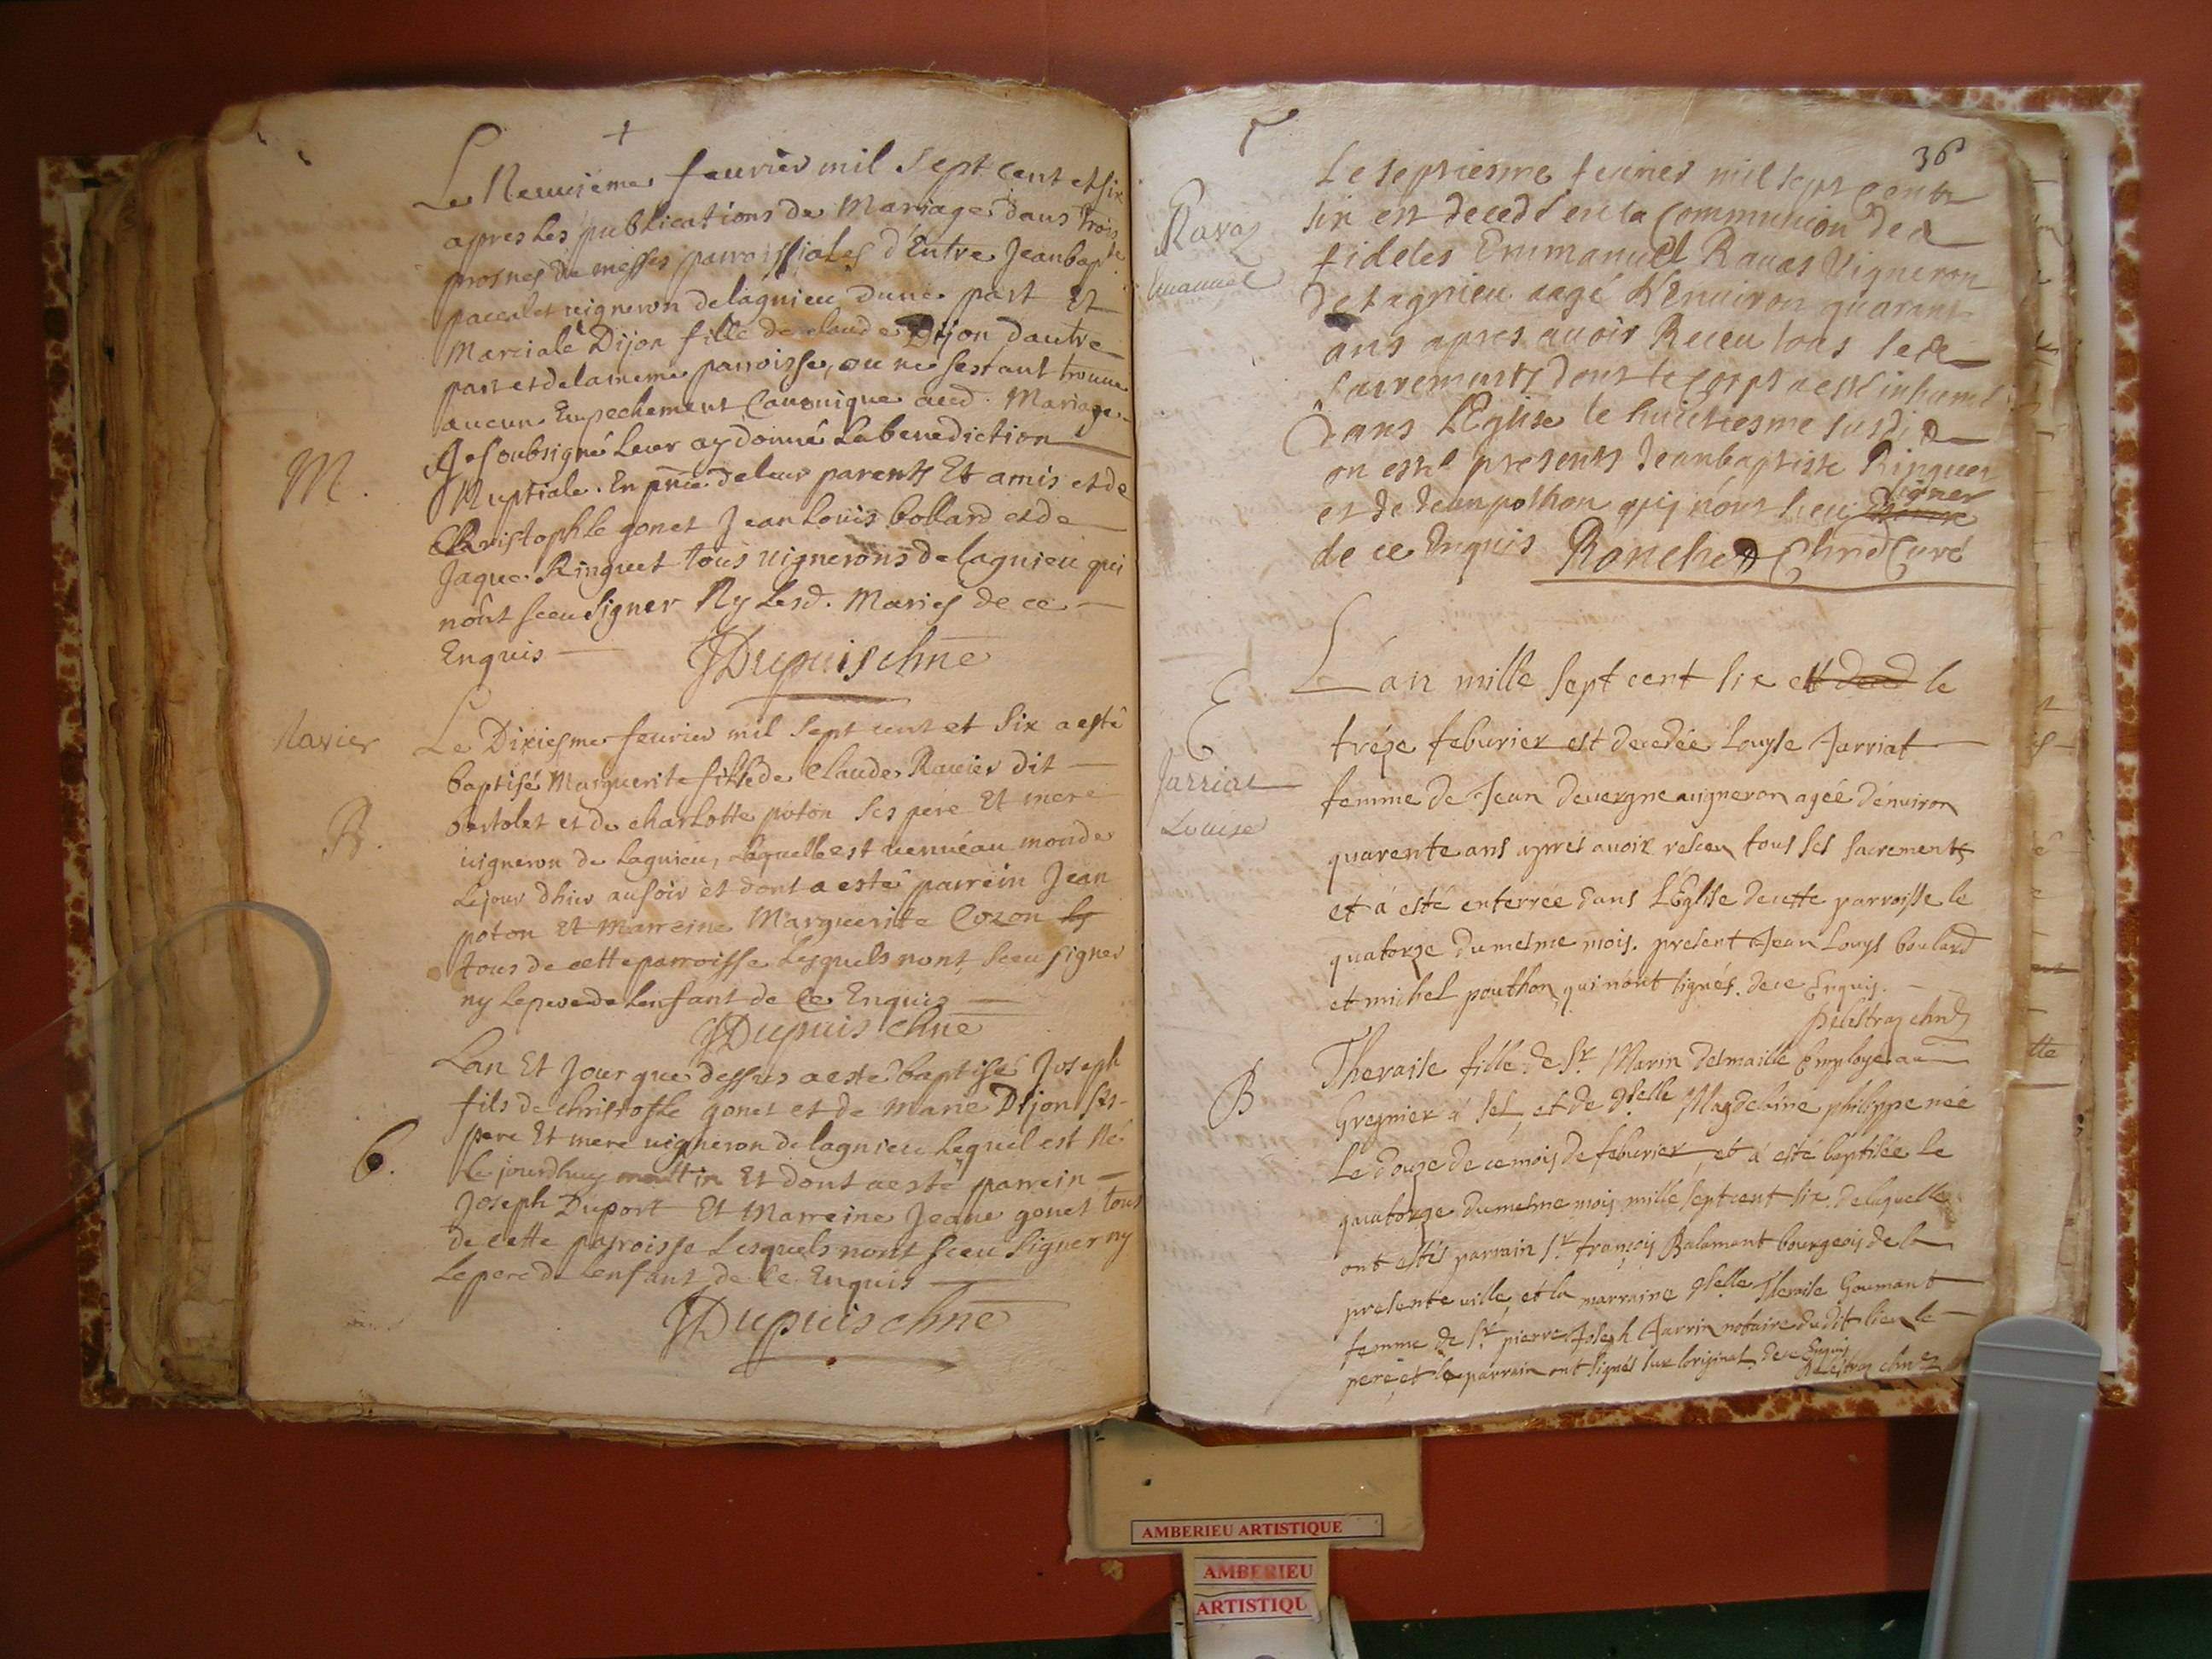 +
Le Neuuiéme feurier mil sept cent et six
apres les publications de Mariage dans trois
prosnes de messes parroissiales d'Entre Jeanbapte
vigneron de lagnieu dune part Et
Marciale Dijon fille de claude Dijon dautre
part et de la meme parroisse, ou ne sestant trouue
aucun Empechement Canonique aud. Mariage
M.
Je soubsigné Leur ay donné La benediction
Nuptiale. En pnce de leur parents Et amis et de
Christophle gonet Jean Louis bollard et de
Jaque Ringuet tous uignerons de lagnieu qui
nont sceu signer Ny Lesd. Mariés de ce
Enquis
JDupuis chne
Ravier
Le Dixiesme feurier mil sept cent et six a esté
baptisé Marguerite fille de Claude Rauier dit
B.
bertolet et de charlotte poton ses pere Et mere
uigneron de lagnieu, laquelle est venue au monde
Le jour dhier au soir et dont a esté parrein Jean
poton Et Marreine Marguerite Cozon
tous de cette parroisse Lesquels nont sceu signer
ny Le pere de Lenfant de Ce Enquis
JDupuis chne
Lan Et Jour que dessus a esté baptisé Joseph
fils de christofle gonet et de Marie Dijon ses
B.
pere Et mere uigneron de lagnieu Lequel est Né
Le jourdhuy mattin Et dont a esté parrein
Joseph Duport Et Marreine Jeane gonet tous
de cette parroisse Lesquels nont sceu signer ny
Le pere de Lenfant de Ce Enquis
JDupuis chne
36
Le septiesme feurier mil sept cents
Ravaz
six est decedé en la Communion des
Emanuel
fideles Emmanuel Rauas Vigneron
de Lagnieu aagé d'Enuiron quarante
ans apres auoir Receu tous les
sacrements dont le corps a esté inhumé
dans L'Eglise le huictiesme susdit
on esté presents Jeanbaptiste Ringuet
et de Jean pothon qui nont sceu signer
de ce Enquis Ronchet Chne Curé
L'an mille sept cent six et deced le
E
tréze feburier est decedée Louyse Jarriat
Jarriat
femme de Jean deuergne uigneron agée d'enuiron
Louise
quarente ans apres auoir receu tous ses sacrements
et a esté enterrée dans L'Église de cette parroisse le
quatorze du mesme mois. present Jean Louys boulard
et michel pouthon qui n'ont signés. de ce Enquis.
Delestraz chne
Theraise fille de Sr. Marin desmaille Employe au
B
Gregnier à sel, et de dselle Magdelaine philippe née
Le douze de ce mois de feburier, et a esté baptisée le
quatorze du mesme mois mille sept cent six. de laquelle
ont estés parrain Sr. françois Balamant bourgeois de la
presente uille, et la marraine dselle Theraise Goumant
femme de Sr. pierre Joseph Jarrin notaire du dit lieu le
pere, et le parrain ont signés sur l'original. de ce Enquis
Delestraz chne
AMBERIEU ARTISTIQUE
AMBERIEU
ARTISTIQU